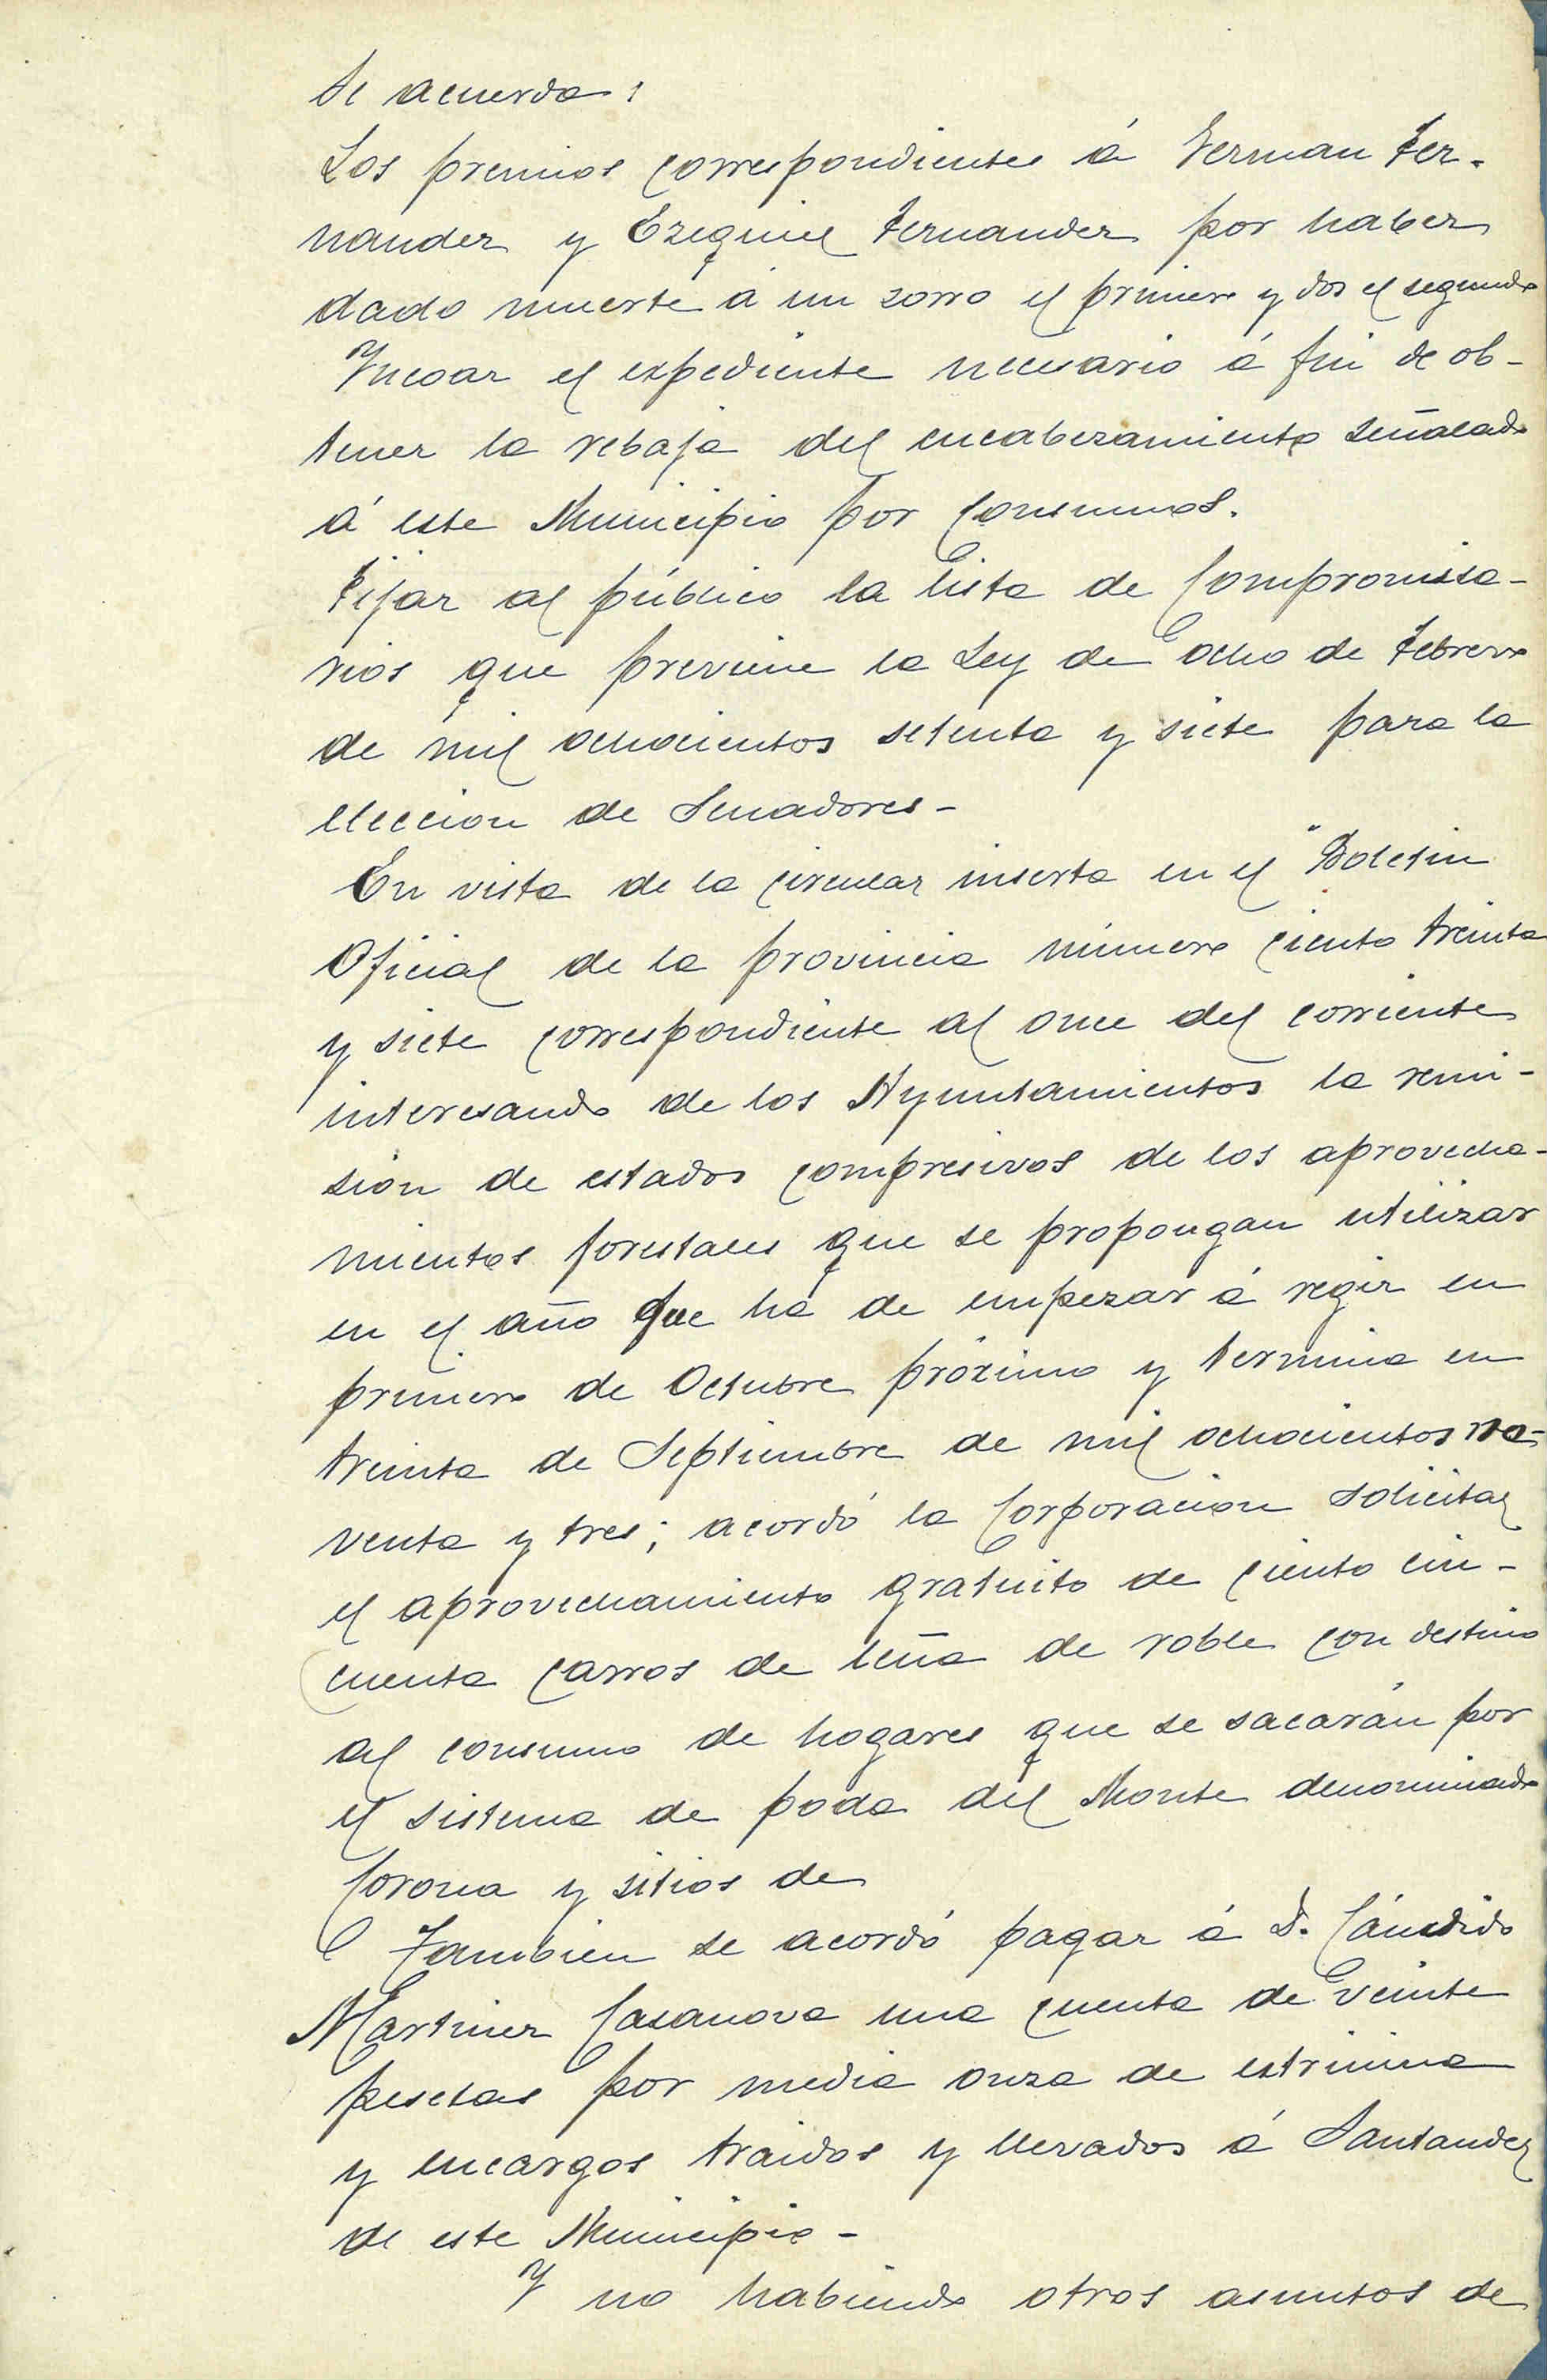 Se acuerda:
Los premios correspondientes á German Fer-
nandez y Ezequiel Fernandez por haber
dado muerte á un zorro el primero y dos el segundo
Incoar el expediente necesario á fin de ob-
tener la rebaja del encabezamiento señalado
á este Municipio por Consumos.
Fijar al público la lista de Compromisa-
rios que previene la Ley de ocho de Febrero
de mil ochocientos setenta y siete para la
eleccion de Senadores-
En vista de la circular inserta en el "Boletin
Oficial de la provincia número ciento treinta
y siete correspondiente al once del corriente
interesando de los Ayuntamientos la remi-
sion de estados compresivos de los aprovecha-
mientos forestales que se propongan utilizar
en el año que há de empezar á regir en
primero de Octubre próximo y termina en
treinta de Septiembre de mil ochocientos no-
venta y tres; acordó la Corporacion solicitar
el aprovechamiento gratuito de ciento cin-
cuenta carros de leña de roble con destino
al consumo de hogares que se sacarán por
el sistema de poda del Monte denominado
Corona y sitios de
Tambien se acordó pagar á D. Cándido
Martinez Casanova una cuenta de veinte
pesetas por media onza de estrinina
y encargos traidos y llevados á Santander
de este Municipio-
Y no habiendo otros asuntos de